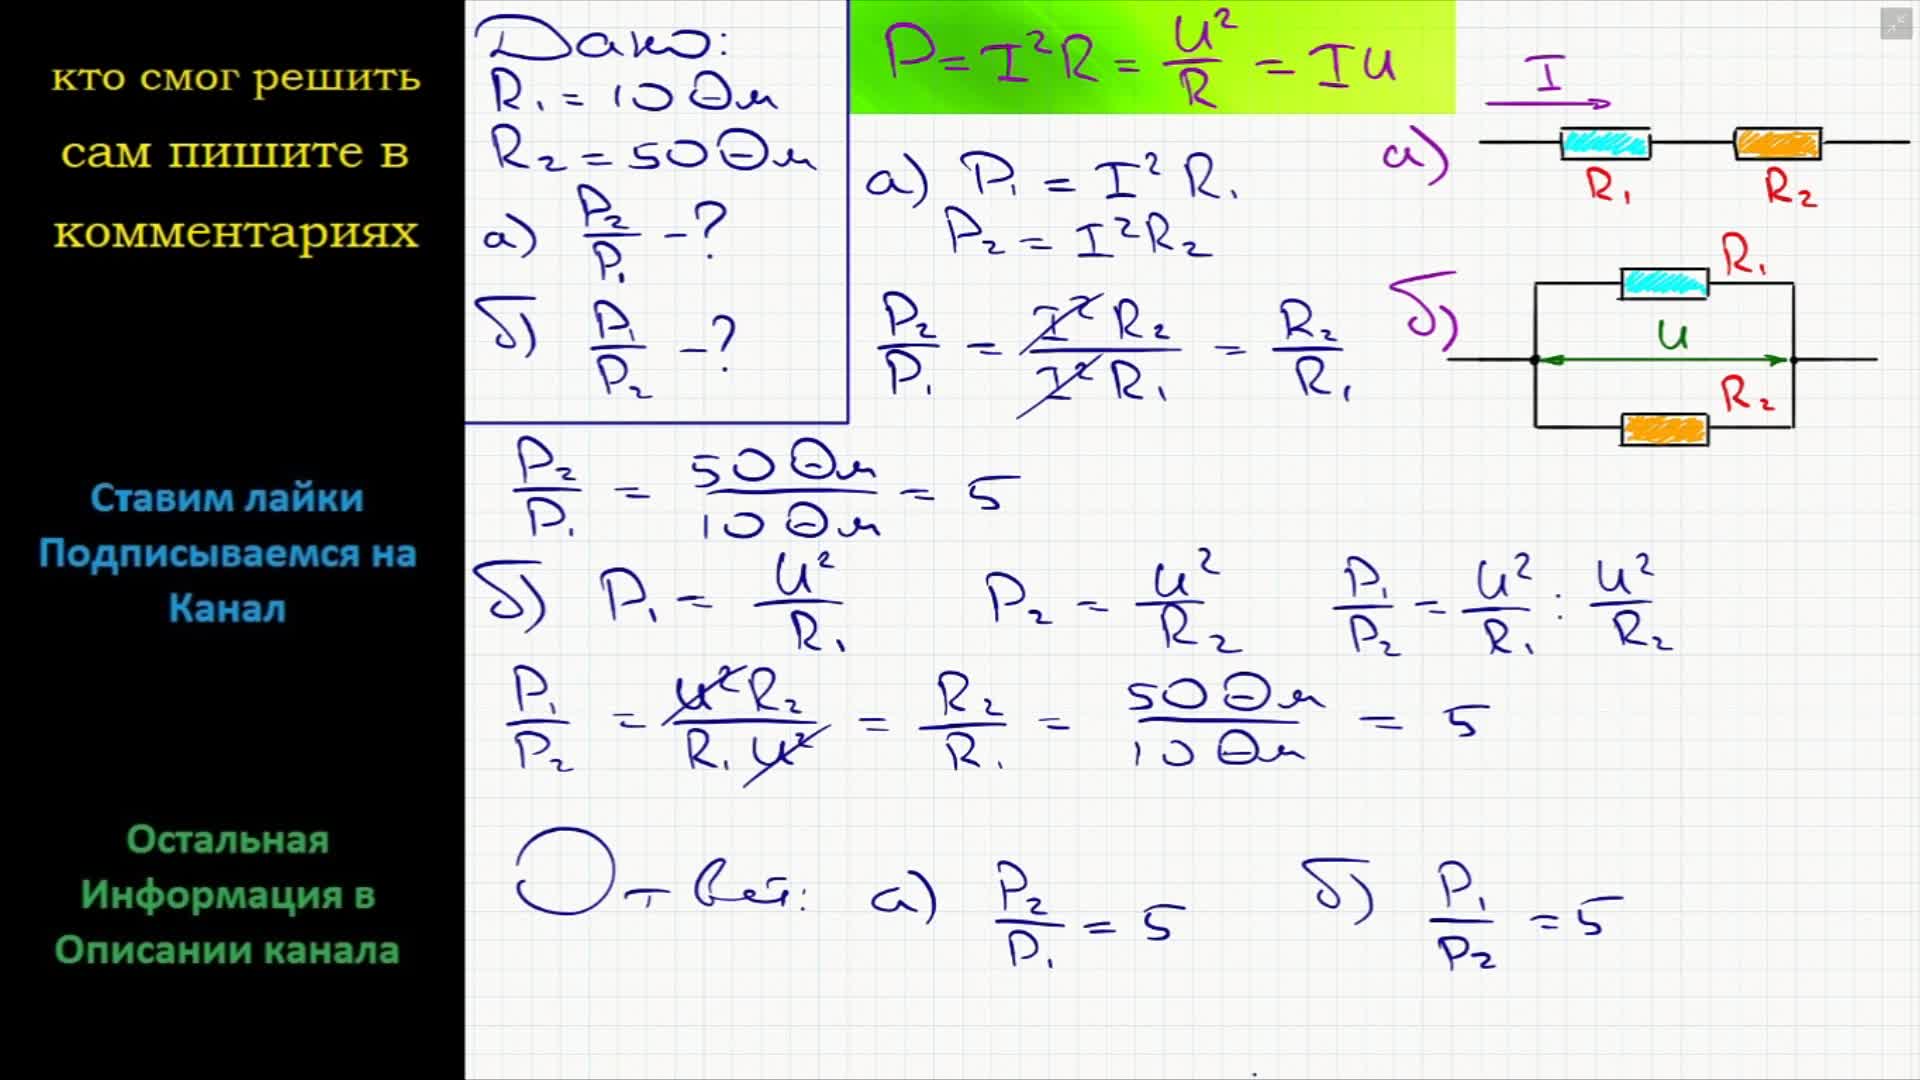 кто смог решить
сам пишите в
комментариях
Ставим лайки
Подписываемся на
Канал
Остальная
Информация в
Описании канала
Дано:
R₁ = 10 Ом
R₂ = 50 Ом
а) P₂/P₁ - ?
б) P₁/P₂ - ?
P = I²R = U²/R = IU
а) P₁ = I² R₁
P₂ = I² R₂
P₂/P₁ = I² R₂ / I² R₁ = R₂/R₁
I
а)
R₁ R₂
б)
R₁
U
R₂
P₂/P₁ = 50 Ом / 10 Ом = 5
б) P₁ = U²/R₁ P₂ = U²/R₂ P₁/P₂ = U²/R₁ : U²/R₂
P₁/P₂ = U² R₂ / R₁ U² = R₂/R₁ = 50 Ом / 10 Ом = 5
Ответ: а) P₂/P₁ = 5 б) P₁/P₂ = 5